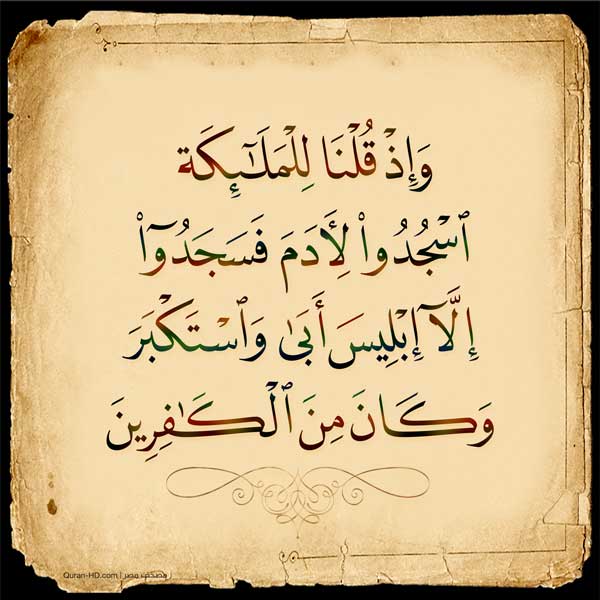 وَإِذْ قُلْنَا لِلْمَلَـٰٓئِكَةِ
ٱسْجُدُوا۟ لِأَدَمَ فَسَجَدُوٓا۟
إِلَّآ إِبْلِيسَ أَبَىٰ وَٱسْتَكْبَرَ
وَكَانَ مِنَ ٱلْكَـٰفِرِينَ
Quran-HD.com | مصحف مصر